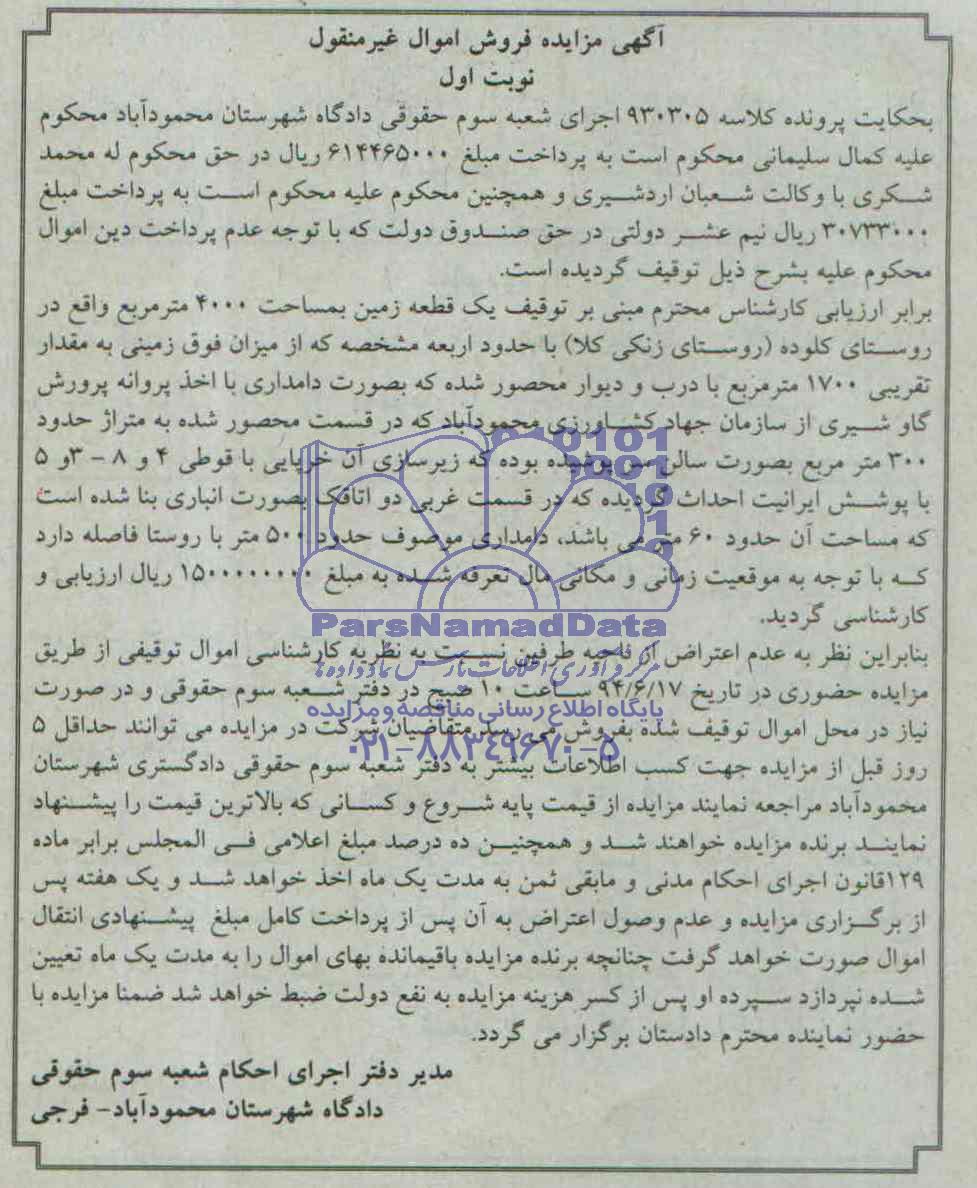 آگهی مزایده فروش اموال غیرمنقول
نوبت اول
بحکایت پرونده کلاسه ۹۳۰۳۰۵ اجرای شعبه سوم حقوقی دادگاه شهرستان محمودآباد محکوم
علیه کمال سلیمانی محکوم است به پرداخت مبلغ ۶۱۴۴۶۵۰۰۰ ریال در حق محکوم له محمد
شکری با وکالت شعبان اردشیری و همچنین محکوم علیه محکوم است به پرداخت مبلغ
۳۰۷۳۳۰۰۰ ریال نیم عشر دولتی در حق صندوق دولت که با توجه عدم پرداخت دین اموال
محکوم علیه بشرح ذیل توقیف گردیده است.
برابر ارزیابی کارشناس محترم مبنی بر توقیف یک قطعه زمین بمساحت ۴۰۰۰ مترمربع واقع در
روستای کلوده (روستای زنکی کلا) با حدود اربعه مشخصه که از میزان فوق زمینی به مقدار
تقریبی ۱۷۰۰ مترمربع با درب و دیوار محصور شده که بصورت دامداری با اخذ پروانه پرورش
گاو شیری از سازمان جهاد کشاورزی محمودآباد که در قسمت محصور شده به متراژ حدود
۳۰۰ متر مربع بصورت سالن سر پوشیده بوده که زیرسازی آن خرپایی با قوطی ۴ و ۸ - ۳و ۵
با پوشش ایرانیت احداث گردیده که در قسمت غربی دو اتاقک بصورت انباری بنا شده است
که مساحت آن حدود ۶۰ متر می باشد، دامداری موصوف حدود ۵۰۰ متر با روستا فاصله دارد
که با توجه به موقعیت زمانی و مکانی مال تعرفه شده به مبلغ ۱۵۰۰۰۰۰۰۰۰ ریال ارزیابی و
کارشناسی گردید.
ParsNamadData
بنابراین نظر به عدم اعتراض از ناحیه طرفین نسبت به نظریه کارشناسی اموال توقیفی از طریق
مرکز فرآوری اطلاعات پارس نماد داده ها
مزایده حضوری در تاریخ ۹۴/۶/۱۷ ساعت ۱۰ صبح در دفتر شعبه سوم حقوقی و در صورت
پایگاه اطلاع رسانی مناقصه و مزایده
نیاز در محل اموال توقیف شده بفروش می رسد، متقاضیان شرکت در مزایده می توانند حداقل ۵
۰۲۱-۸۸۳۴۹۶۷۰-۵
روز قبل از مزایده جهت کسب اطلاعات بیشتر به دفتر شعبه سوم حقوقی دادگستری شهرستان
محمودآباد مراجعه نمایند مزایده از قیمت پایه شروع و کسانی که بالاترین قیمت را پیشنهاد
نمایند برنده مزایده خواهند شد و همچنین ده درصد مبلغ اعلامی فی المجلس برابر ماده
۱۲۹قانون اجرای احکام مدنی و مابقی ثمن به مدت یک ماه اخذ خواهد شد و یک هفته پس
از برگزاری مزایده و عدم وصول اعتراض به آن پس از پرداخت کامل مبلغ پیشنهادی انتقال
اموال صورت خواهد گرفت چنانچه برنده مزایده باقیمانده بهای اموال را به مدت یک ماه تعیین
شده نپردازد سپرده او پس از کسر هزینه مزایده به نفع دولت ضبط خواهد شد ضمنا مزایده با
حضور نماینده محترم دادستان برگزار می گردد.
مدیر دفتر اجرای احکام شعبه سوم حقوقی
دادگاه شهرستان محمودآباد- فرجی